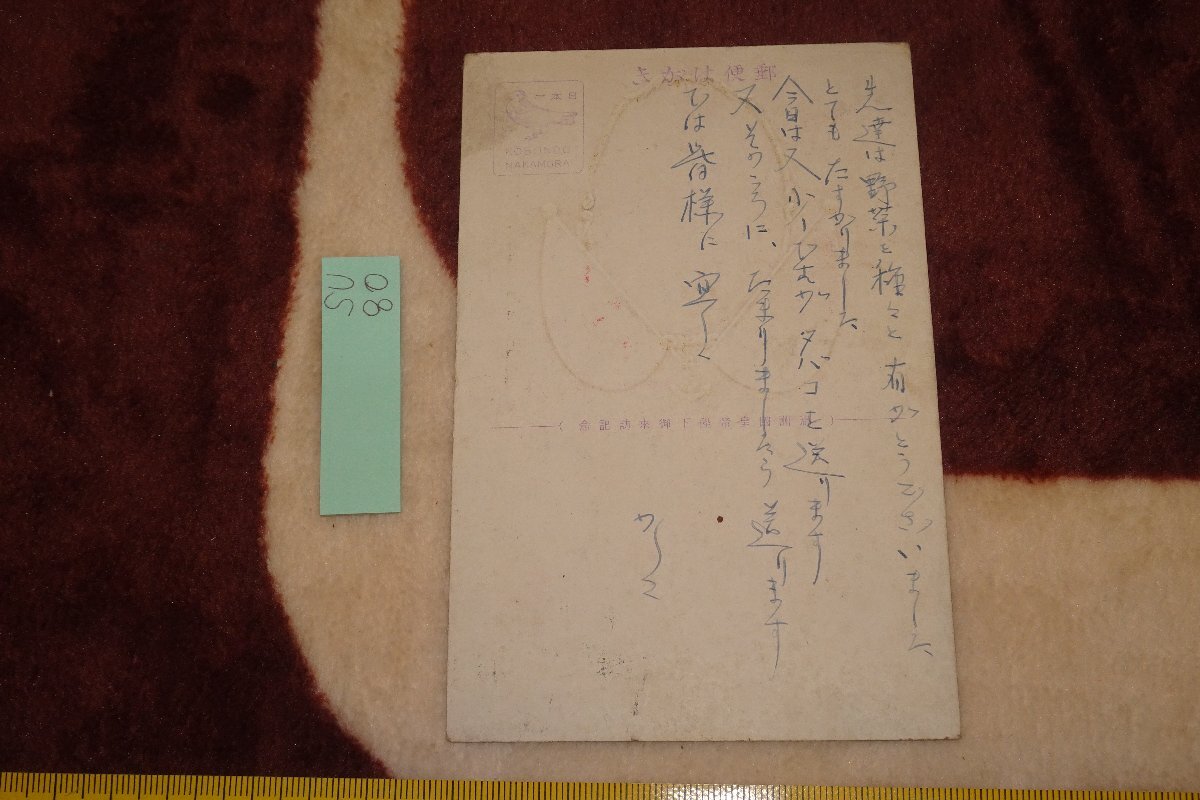 郵便はがき
日本一
KOBUNDO
NAKAMURA
先達は野菜を種々と有がとうございました
とても たすかりました
今日は又少しですがタバコを送ります
又 そのうちに、たまりましたら送ります
では皆様に宜しく
かしこ
(満洲国皇帝陛下御来訪記念)
SU
080